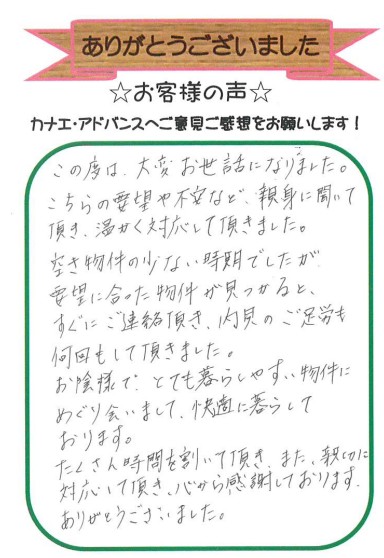 ありがとうございました
☆お客様の声☆
カナエ・アドバンスへご意見ご感想をお願いします！
この度は、大変お世話になりました。
こちらの要望や不安など、親身に聞いて
頂き、温かく対応して頂きました。
空き物件の少ない時期でしたが
要望に合った物件が見つかると、
すぐにご連絡頂き、内見のご足労も
何回もして頂きました。
お陰様で、とても暮らしやすい物件に
めぐり会いまして、快適に暮らして
おります。
たくさん時間を割いて頂き、また、親切に
対応して頂き、心から感謝しております。
ありがとうございました。